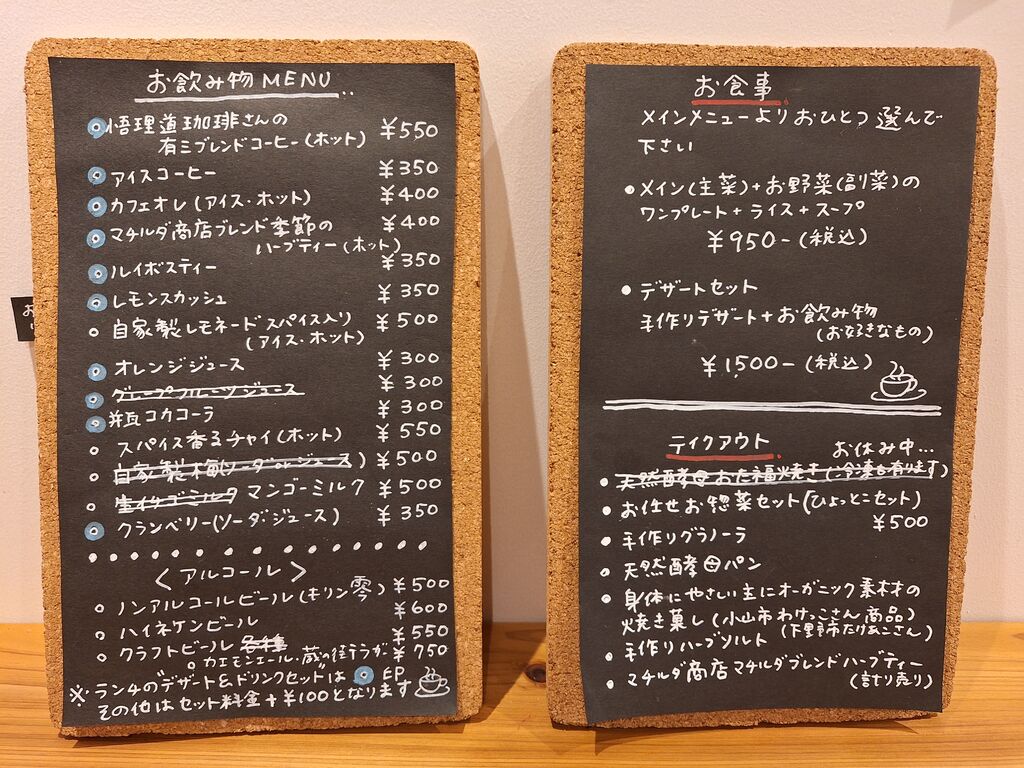 お飲み物 MENU
悟理道珈琲さんの
有ミブレンドコーヒー(ホット) ¥550
アイスコーヒー ¥350
カフェオレ(アイス・ホット) ¥400
マチルダ商店ブレンド季節の ¥400
ハーブティー(ホット)
ルイボスティー ¥350
レモンスカッシュ ¥350
自家製レモネードスパイス入り ¥500
(アイス・ホット)
オレンジジュース ¥300
グレープフルーツジュース ¥300
瓶コカコーラ ¥300
スパイス香るチャイ(ホット) ¥550
自家製 ソーダorジュース) ¥500
生イチゴミルク マンゴーミルク ¥500
クランベリー(ソーダ・ジュース) ¥350
〈アルコール〉
ノンアルコールビール(キリン零) ¥500
ハイネケンビール ¥600
クラフトビール 各種 ¥550
カエモンエール・蔵の街テラガ ¥750
※ランチのデザート&ドリンクセットは EP
その他はセット料金+¥100となります
お食事
メインメニューよりおひとつ選んで
下さい
・メイン(主菜)+お野菜(副菜)の
ワンプレート+ライス+スープ
¥950-(税込)
・デザートセット
手作りデザート+お飲み物
(お好きなもの)
¥1,500-(税込)
テイクアウト
お休み中…
・天然酵母おた福焼き(冷凍も有ります)
・お任せお惣菜セット(ひょっとこセット)
¥500
・手作りグラノーラ
・天然酵母パン
・身体にやさしい主にオーガニック素材の
焼き菓し(小山市わけっこさん商品)
(下野市たけあこさん)
・手作りハーブソルト
・マチルダ商店マチルダブレンドハーブティー
(計り売り)